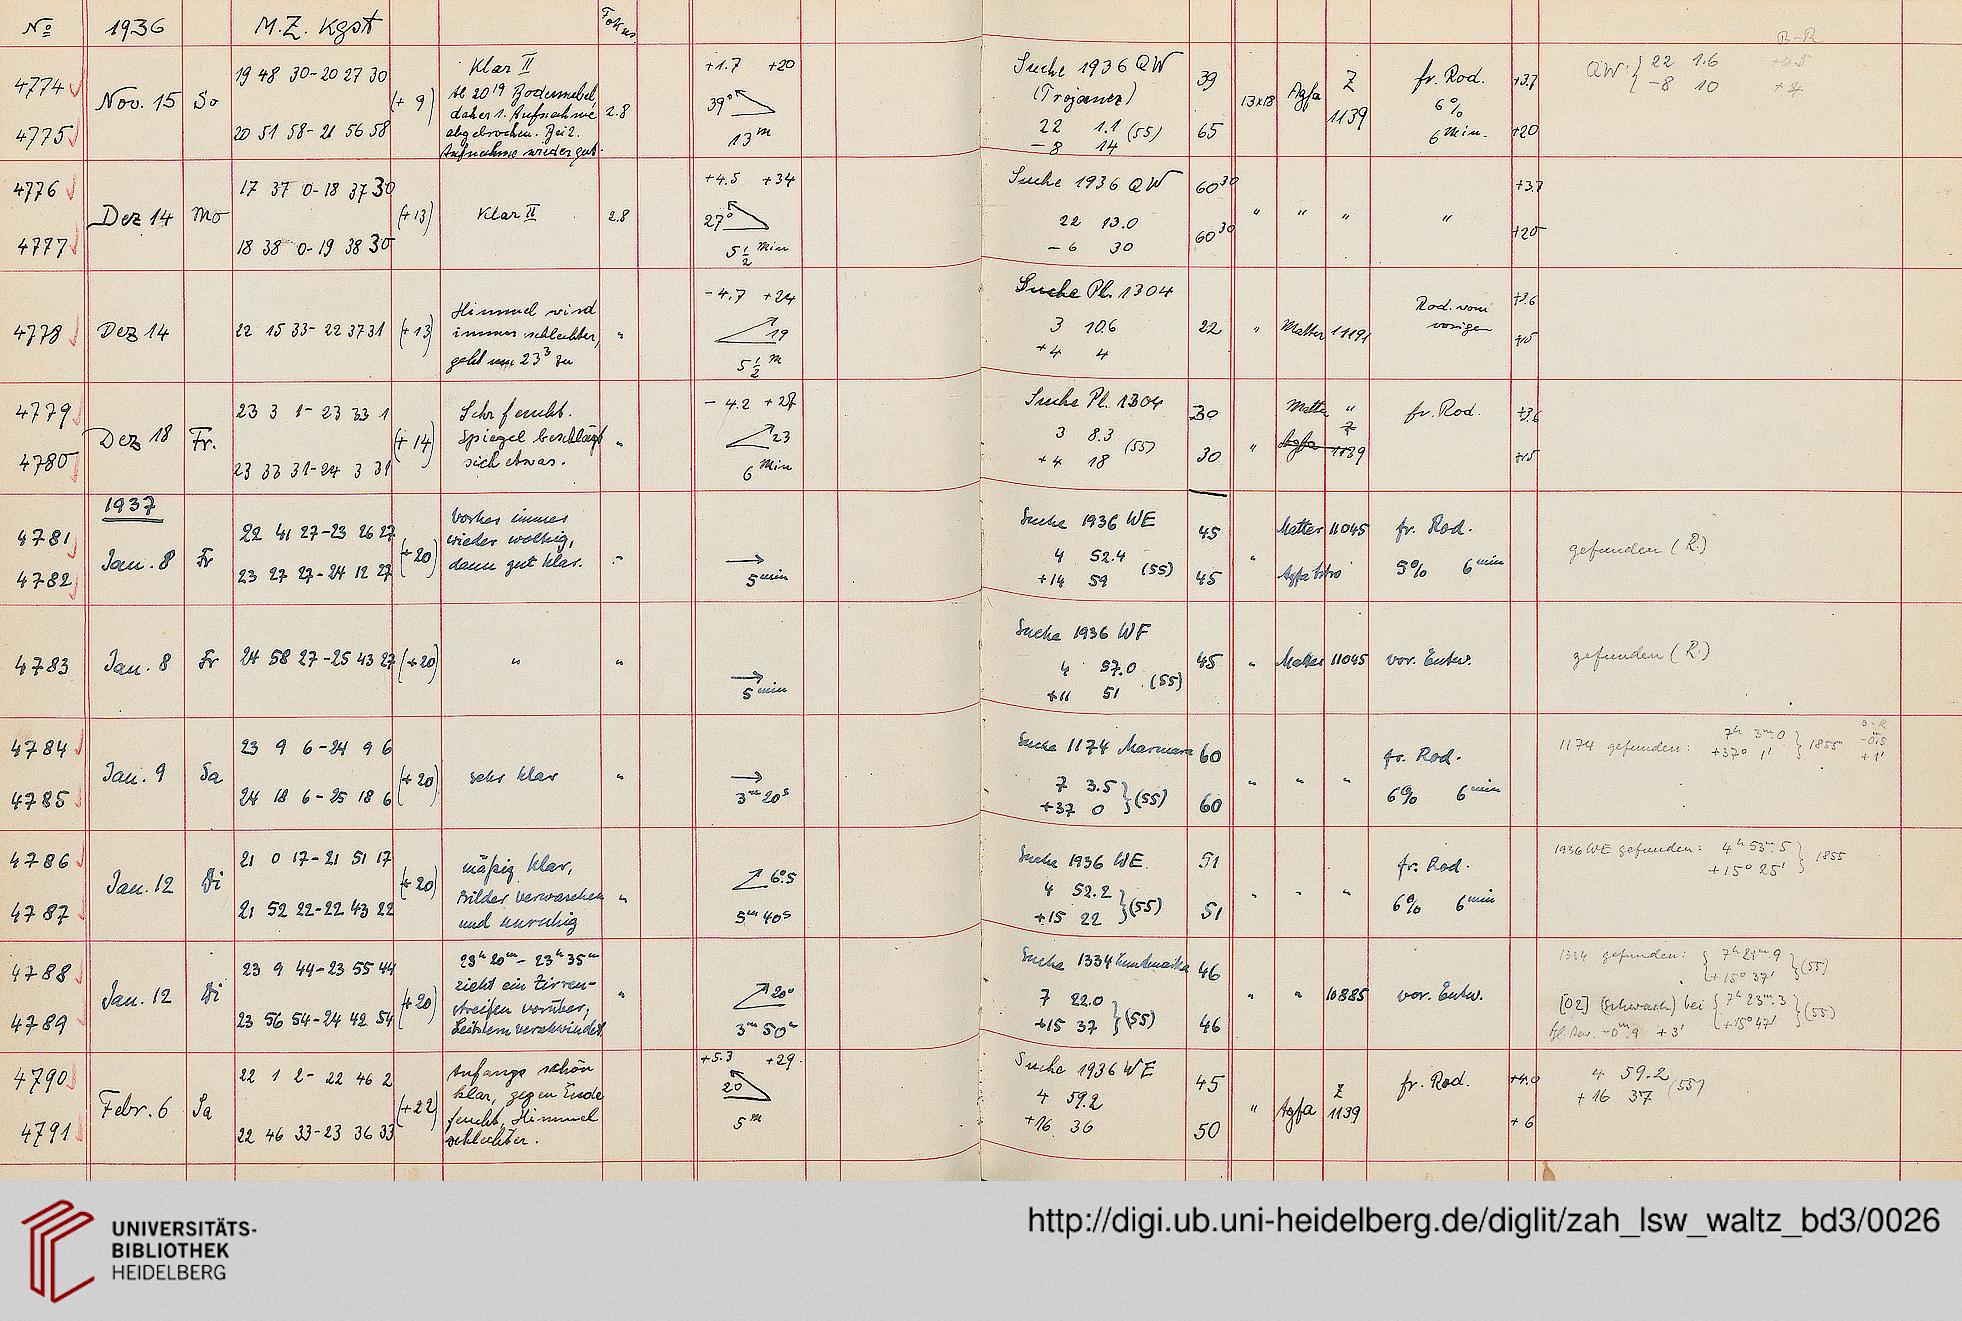 No 1936 M.Z. Kgst Fokus
B-R
4774 Nov. 15 So 19 48 30 - 20 27 30 (+ 9)
4775 20 51 58 - 21 56 58
Klar II
ab 20 19 Bodennebel,
daher 1. Aufnahme
abgebrochen. Bei 2.
Aufnahme wieder gut.
2.8
+1.7 +20
39°
13 m
Suche 1936 QW
(Trojaner)
22 1.1 (55)
-8 14
39
65
13x18 Agfa Z 1139
fr. Rod.
6%
6 Min.
+3.7
+20
QW: { 22 1.6 +0.5
-8 10
4776 Dez 14 Mo 17 37 0 - 18 37 30 (+13) Klar II 2.8
4777 18 38 0 - 19 38 30
+4.5 +34
27°
5 1/2 Min
Suche 1936 QW
22 13.0
-6 30
60 30
60 30
" " " "
+3.7
+20
4778 Dez 14 22 15 33 - 22 37 31 (+13)
Himmel wird
immer schlechter,
geht um 23 3 zu
"
-4.7 +24
19
5 1/2 m
Suche Pl. 1304
3 10.6
+4 4
22 " Matter 11191
Rod. vom
vorigen
+3.6
+15
4779 Dez 18 Fr. 23 3 1 - 23 33 1 (+ 14)
4780 23 33 31 - 24 3 31
Sehr feucht.
Spiegel beschlägt
sich etwas.
"
-4.2 +27
23
6 Min
Suche Pl. 1304
3 8.3 (55)
+4 18
30
30
" Matter "
Agfa Z 1139
fr. Rod.
+3.6
+15
1937
4781 Jan. 8 Fr 22 41 27 - 23 26 27 (+20)
4782 23 27 27 - 24 12 27
Vorher immer
wieder wolkig,
dann gut klar.
"
5 min
Suche 1936 WE
4 52.4 (55)
+14 59
45
45
" Matter 11045
Agfa Astro
fr. Rod.
5% 6 min
gefunden (R.)
4783 Jan. 8 Fr 24 58 27 - 25 43 27 (+20) " "
5 min
Suche 1936 WF
4 57.0 (55)
+11 51
45 " Matter 11045 vor. Entw.
gefunden (R.)
4784 Jan. 9 Sa 23 9 6 - 24 9 6 (+20) sehr klar "
4785 24 18 6 - 25 18 6
3 m 20 s
Suche 1174 Marmara
7 3.5 } (55)
+37 0
60
60
" " "
fr. Rod.
6% 6 min
1174 gefunden: 7h 3m.0 } 1855
+37° 1'
B-R
+1'
4786 Jan. 12 Di 21 0 17 - 21 51 17 (+20)
4787 21 52 22 - 22 43 22
mäßig klar,
Bilder verwaschen
und unruhig
"
6°.5
5 m 40 s
Suche 1936 WE
4 52.2 } (55)
+15 22
51
51
" " "
fr. Rod.
6% 6 min
1936 WE gefunden: 4h 53m.5 } 1855
+15° 25'
4788 Jan. 12 Di 23 9 44 - 23 55 44 (+20)
4789 23 56 54 - 24 42 54
23h 20m - 23h 35m
zieht ein Cirren-
streifen vorüber,
Leitstern verschwindet
"
20°
3 m 50 s
Suche 1334 Lundmarka
7 22.0 } (55)
+15 37
46
46
" " 10885 vor. Entw.
1334 gefunden: { 7h 21m.9 } (55)
+15° 37'
[02] (schwach) bei { 7h 23m.3 } (55)
+15° 47'
-0m.9 +3'
4790 Febr. 6 Sa 22 1 2 - 22 46 2 (+22)
4791 22 46 33 - 23 36 33
Anfangs schön
klar, gegen Ende
feucht, Himmel
schlechter.
+5.3 +29
20
5 m
Suche 1936 WE
4 59.2
+16 36
45
50
" Agfa Z 1139
fr. Rod.
+4.0
+6
4 59.2 (55)
+16 37
UNIVERSITÄTS-
BIBLIOTHEK
HEIDELBERG
http://digi.ub.uni-heidelberg.de/diglit/zah_lsw_waltz_bd3/0026